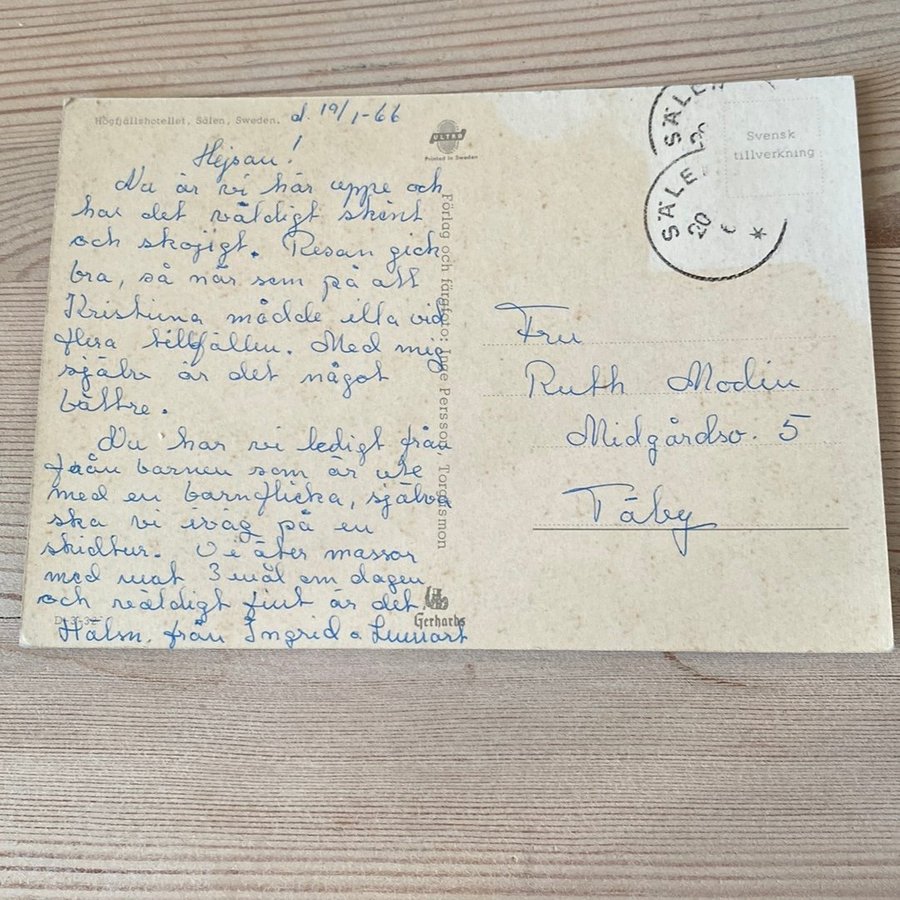 Högfjällshotellet, Sälen, Sweden.
d. 19/1-66
Hejsan!
Nu är vi här uppe och
har det väldigt skönt
och skojigt. Resan gick
bra, så när som på att
Kristiina mådde illa vid
flera tillfällen. Med mig
själv är det något
bättre.
Nu har vi ledigt från
från barnen som är ute
med en barnflicka, själva
ska vi iväg på en
skidtur. Vi äter massor
med mat 3 mål om dagen
och väldigt fint är det.
Hälsn. från Ingrid o Lennart
ULTRA
Printed in Sweden
Förlag och färgfoto: Inge Persson, Torgåsmon
Gerhards
SÄLEN
20
SÄLEN
Svensk
tillverkning
Fru
Ruth Modin
Midgårdsv. 5
Täby